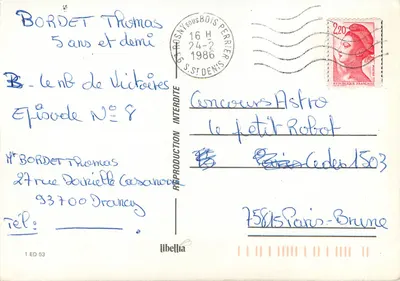 BORDET Thomas
5 ans et demi
B. le nb de Victoires
Episode N° 8
Mr BORDET Thomas
27 rue Danielle Casanova
93700 Drancy
Tél:
1 ED 53
REPRODUCTION INTERDITE
libellia
93 ROSNY SOUS BOIS PERRIER
16 H
24-2
1986
S. ST DENIS
2,20
Concours Astro
le petit Robot
Cedex 1503
75815 Paris-Brune